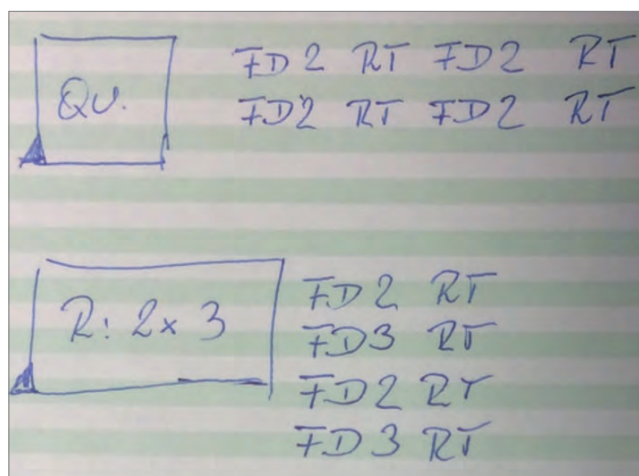 QU.
FD2 RT FD2 RT
FD2 RT FD2 RT
R: 2x3
FD2 RT
FD3 RT
FD2 RT
FD3 RT